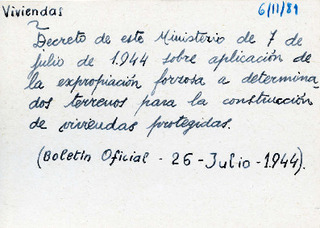 Viviendas
6/11/81
Decreto de este Ministerio de 7 de
julio de 1.944 sobre aplicación de
la expropiación forzosa a determina
dos terrenos para la construcción
de viviendas protegidas.
(Boletín Oficial - 26 - Julio - 1.944).